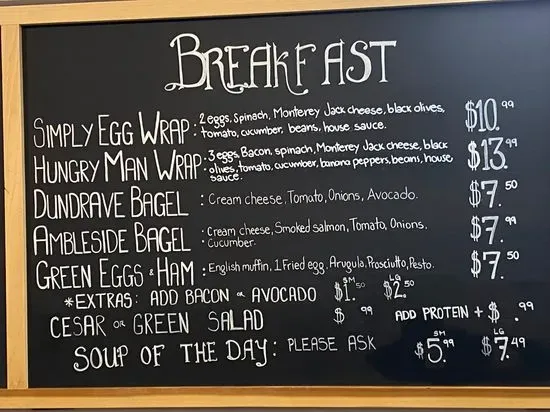 BREAKFAST
SIMPLY EGG WRAP : 2 eggs, Spinach, Monterey Jack cheese, black olives, $10.99
tomato, cucumber, beans, house sauce.
HUNGRY MAN WRAP : 3 eggs, Bacon, spinach, Monterey Jack cheese, black $13.99
olives, tomato, cucumber, banana peppers, beans, house
sauce.
DUNDRAVE BAGEL : Cream cheese, Tomato, Onions, Avocado. $7.50
AMBLESIDE BAGEL : Cream cheese, Smoked salmon, Tomato, Onions. $7.99
Cucumber.
GREEN EGGS & HAM : English muffin, 1 Fried egg, Arugula, Prosciutto, Pesto. $7.50
*EXTRAS: ADD BACON or AVOCADO SM $1.50 LG $2.50
CESAR or GREEN SALAD $ .99 ADD PROTEIN + $ .99
SOUP OF THE DAY: PLEASE ASK SM $5.99 LG $7.49